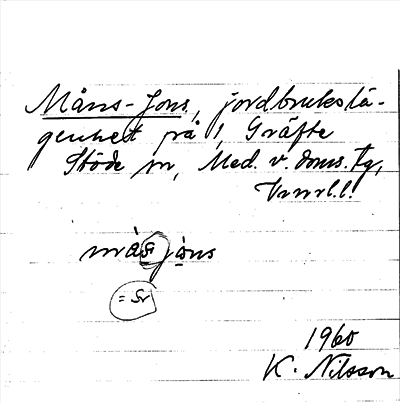 Måns-Jons, jordbrukslä-
genhet på 1, Gräfte
Stöde sn, Med. v. doms. tg,
Vnrl.l.
måsjo̤ns
1960
K. Nilsson